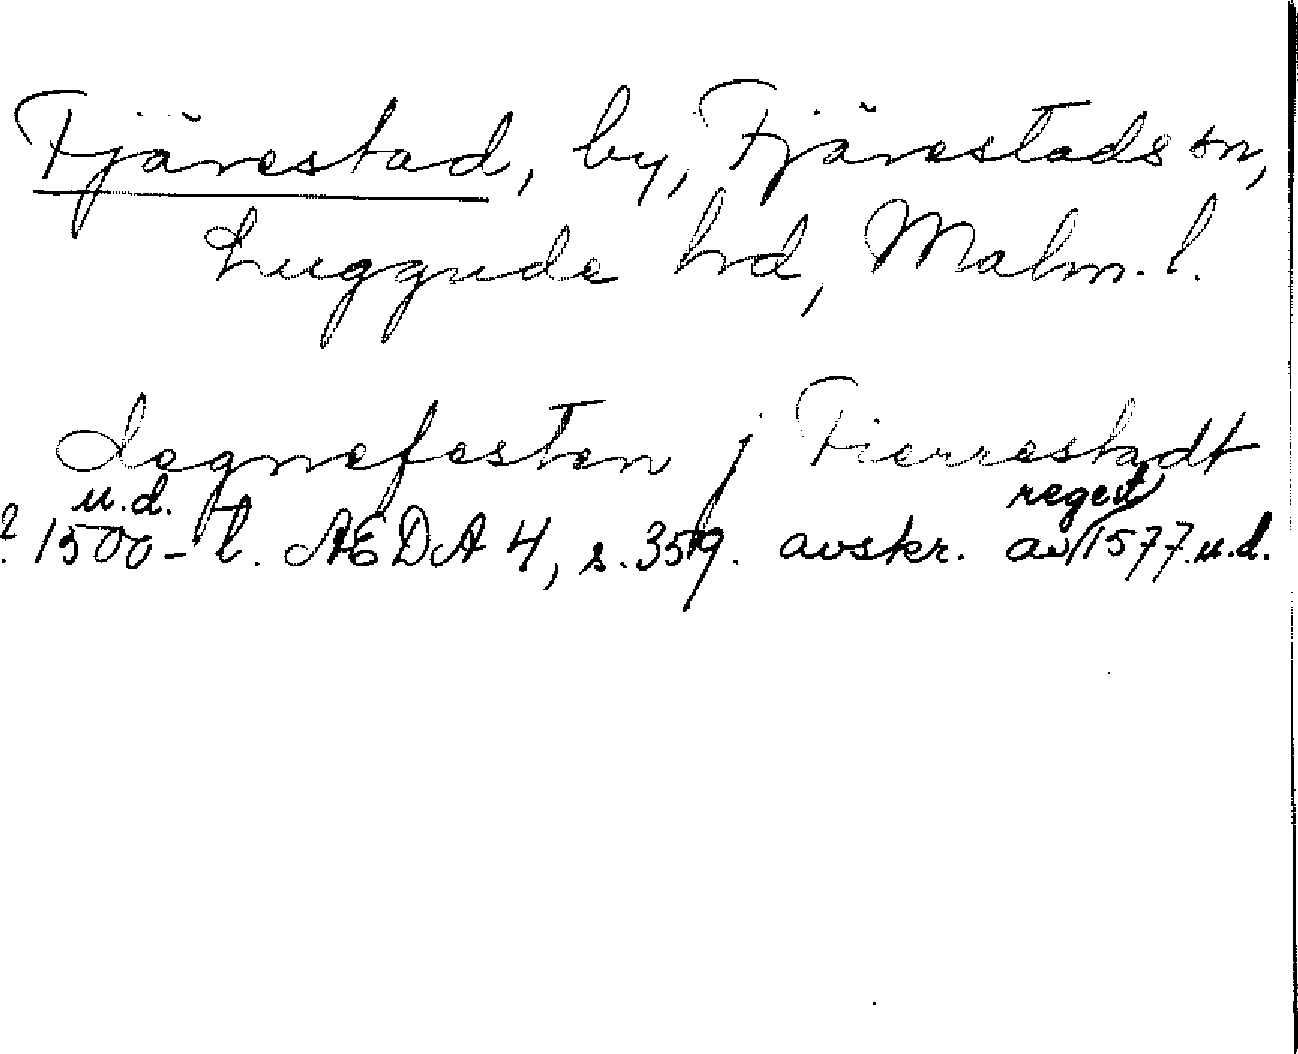 Fjärestad, by, Fjärestads sn,
Luggude hd, Malm. l.
Sognefesten j Fierrestadt
u.d. regest
? 1500-t. ÆDA 4, s. 359. avskr. av 1577 u.d.